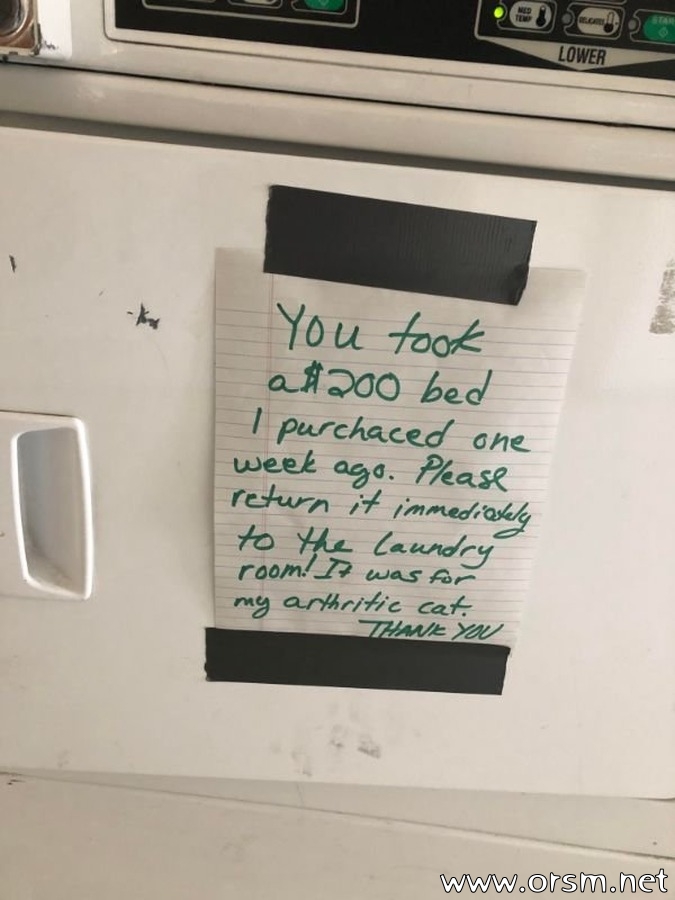 MED
TEMP
DELICATES
START
LOWER
You took
a $200 bed
I purchaced one
week ago. Please
return it immediately
to the laundry
room! It was for
my arthritic cat.
THANK YOU
www.orsm.net